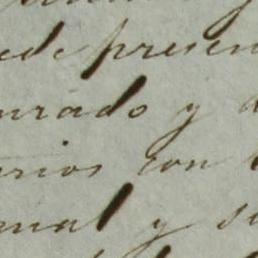 ede presen
urado y d
arios con l
mal y su